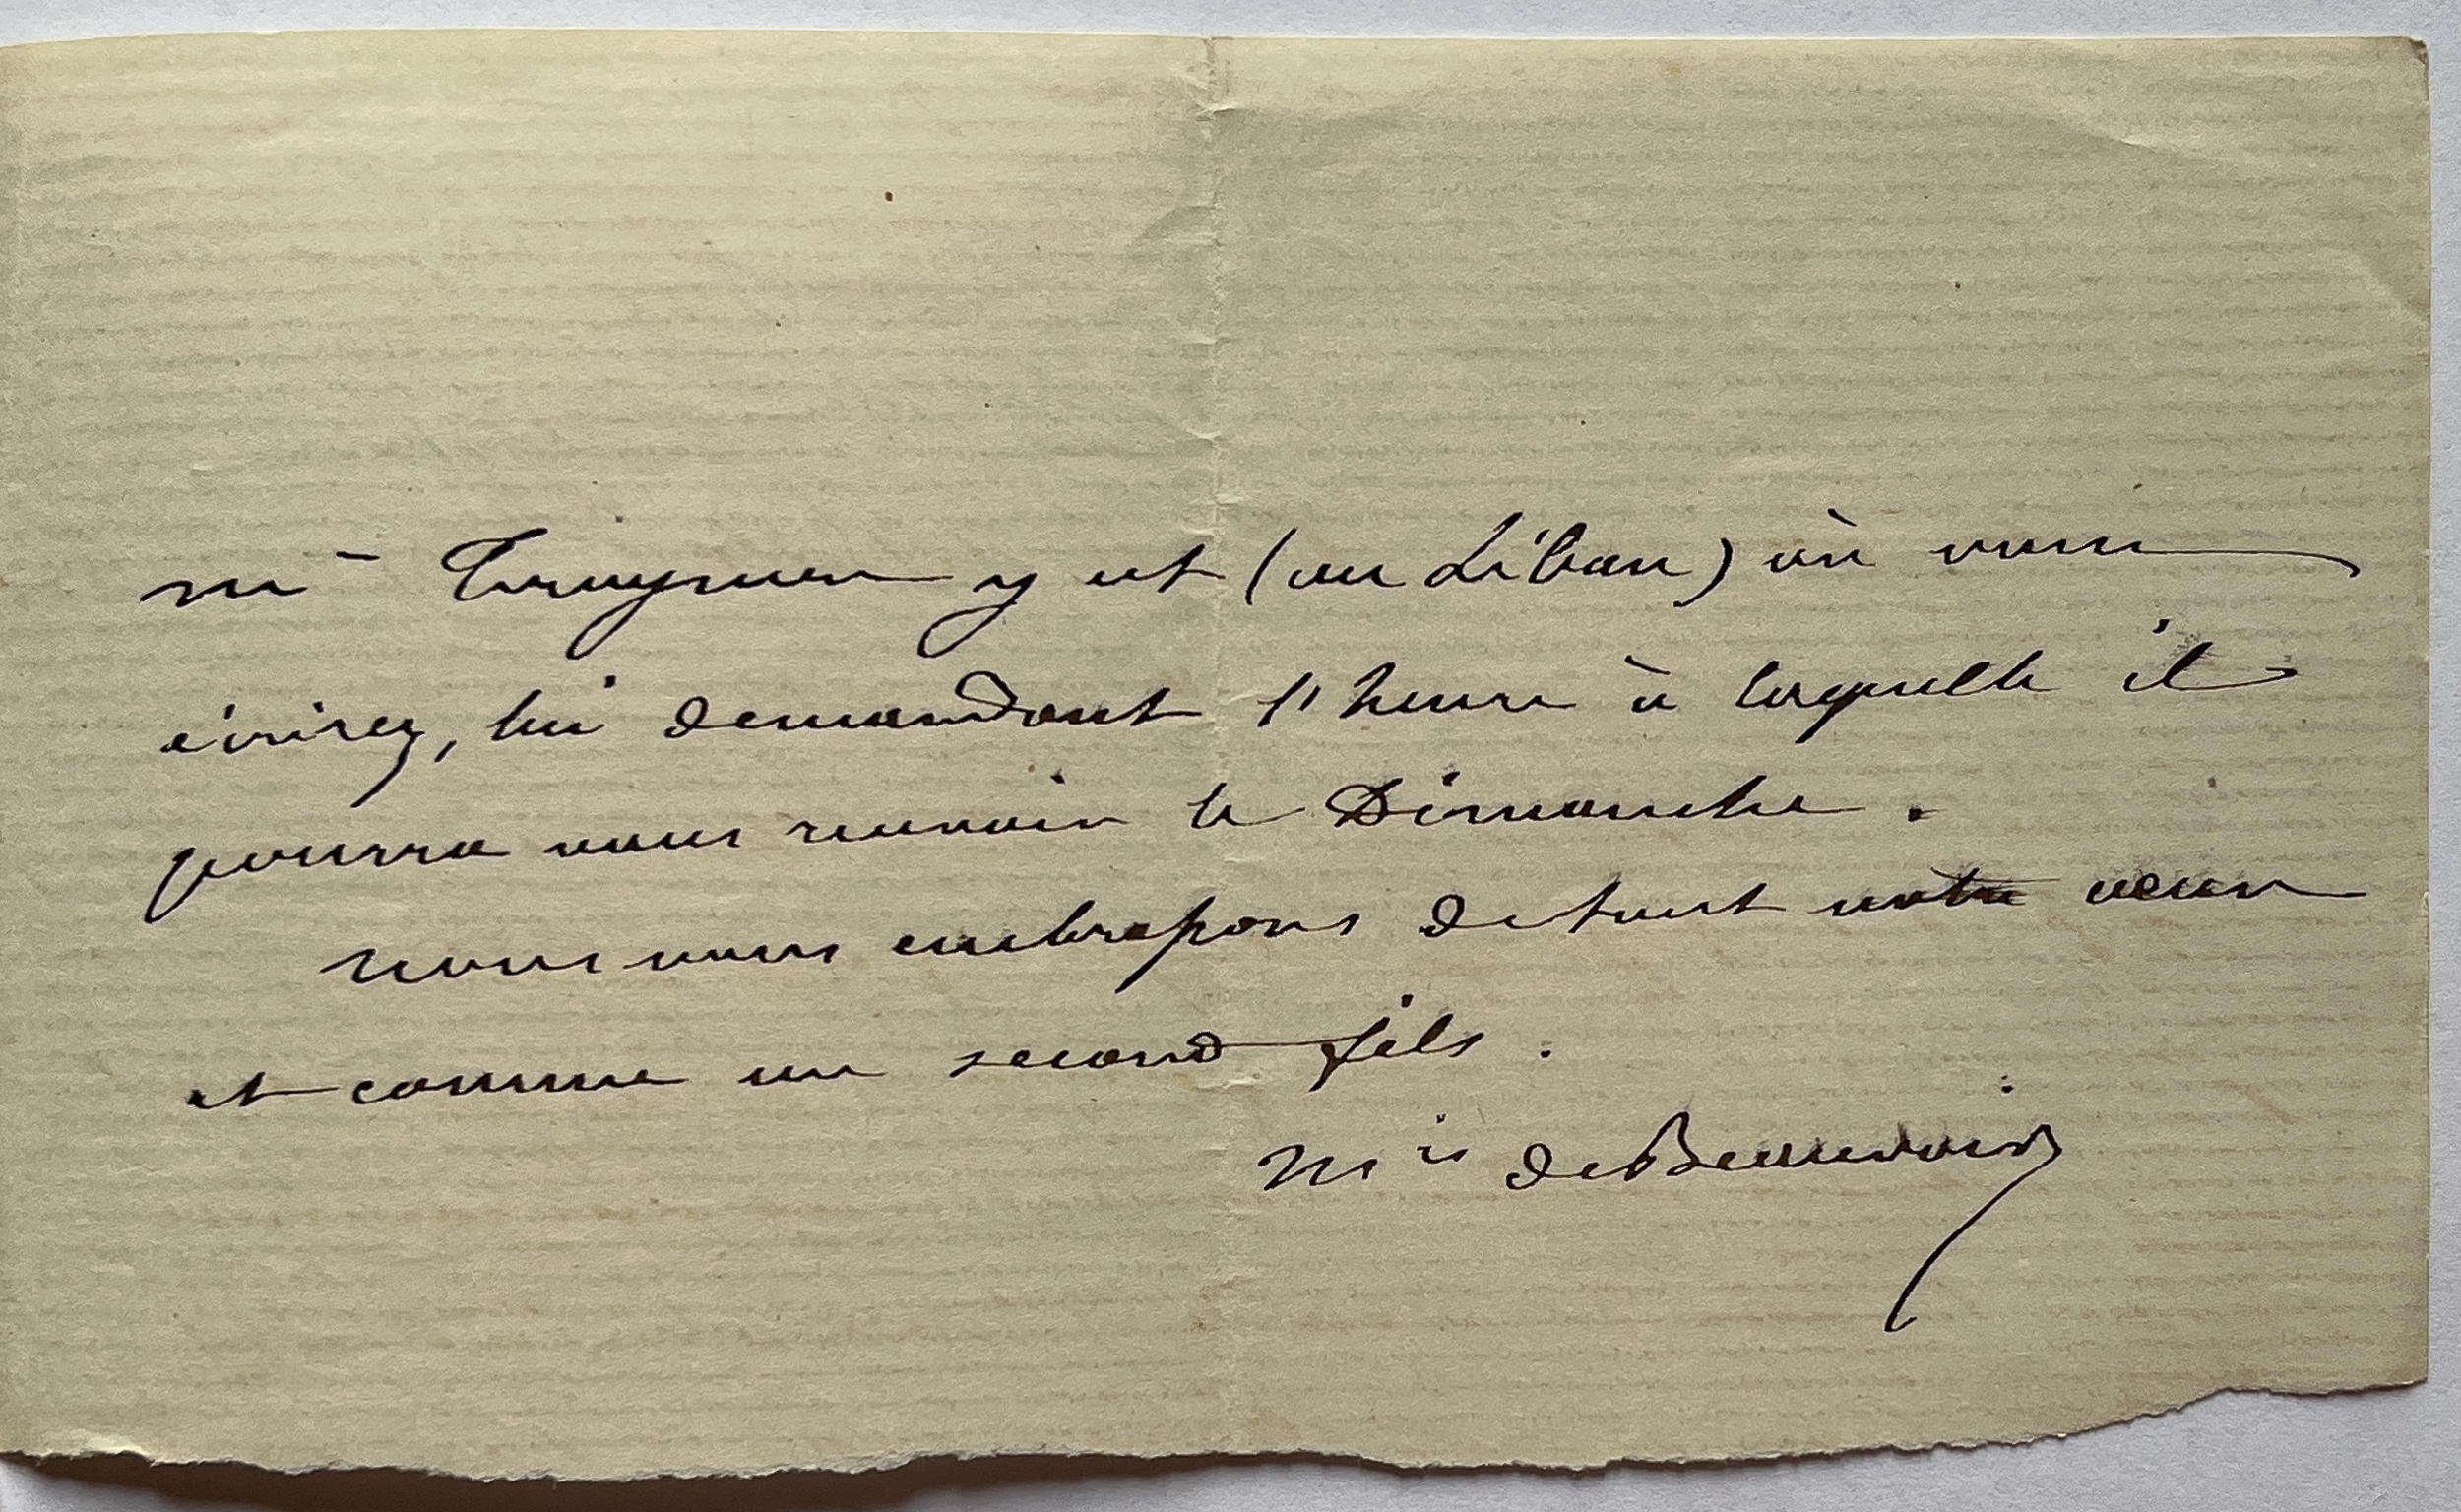 Mr y est (au Liban) où vous
écrirez, lui demandant l'heure à laquelle il
pourra vous recevoir le Dimanche.
nous vous embrassons de tout notre cœur
et comme un second fils.
Mis de Beauvoir